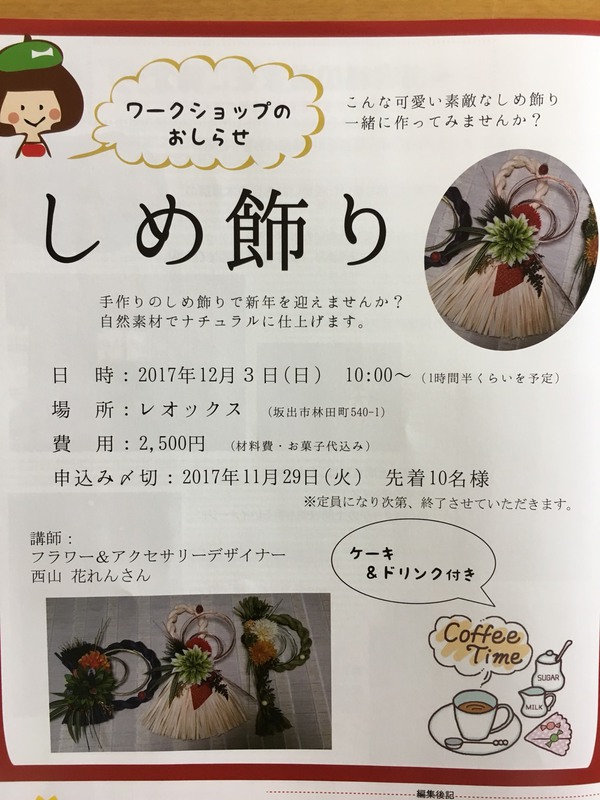 ワークショップの
おしらせ
こんな可愛い素敵なしめ飾り
一緒に作ってみませんか？
しめ飾り
手作りのしめ飾りで新年を迎えませんか？
自然素材でナチュラルに仕上げます。
日　時：2017年12月３日(日)　10:00〜（1時間半くらいを予定）
場　所：レオックス　（坂出市林田町540-1）
費　用：2,500円　（材料費・お菓子代込み）
申込み〆切：2017年11月29日(火)　先着10名様
※定員になり次第、終了させていただきます。
講師：
フラワー＆アクセサリーデザイナー
西山 花れんさん
ケーキ
＆ドリンク付き
Coffee
Time
SUGAR
MILK
編集後記